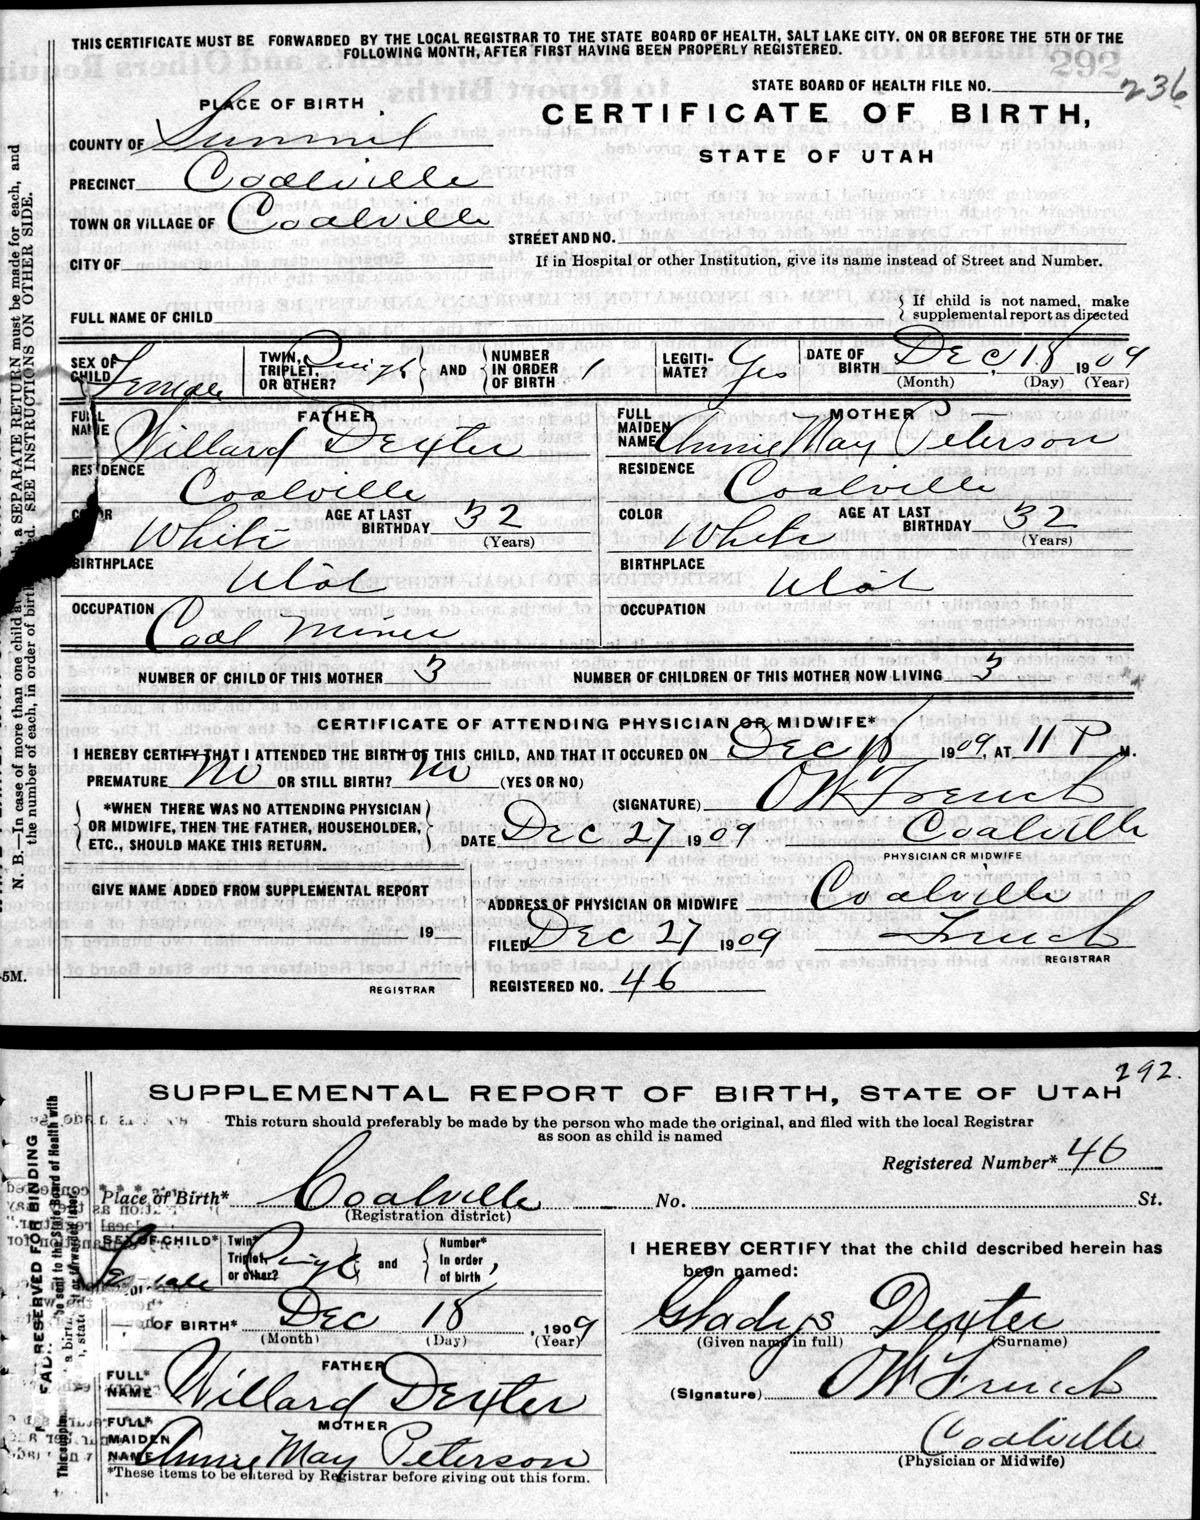 THIS CERTIFICATE MUST BE FORWARDED BY THE LOCAL REGISTRAR TO THE STATE BOARD OF HEALTH, SALT LAKE CITY, ON OR BEFORE THE 5TH OF THE
FOLLOWING MONTH, AFTER FIRST HAVING BEEN PROPERLY REGISTERED.
292
STATE BOARD OF HEALTH FILE NO. 236
PLACE OF BIRTH
CERTIFICATE OF BIRTH,
STATE OF UTAH
COUNTY OF Summit
PRECINCT Coalville
TOWN OR VILLAGE OF Coalville
STREET AND NO.
CITY OF
If in Hospital or other Institution, give its name instead of Street and Number.
FULL NAME OF CHILD
If child is not named, make
supplemental report as directed
SEX OF CHILD Female
TWIN, TRIPLET, OR OTHER? Single
AND
NUMBER IN ORDER OF BIRTH 1
LEGITI-MATE? Yes
DATE OF BIRTH Dec, 18 1909
(Month) (Day) (Year)
FATHER
FULL NAME Willard Dexter
RESIDENCE
Coalville
COLOR White
AGE AT LAST BIRTHDAY 32
(Years)
BIRTHPLACE
Utah
OCCUPATION
Coal Miner
MOTHER
FULL MAIDEN NAME Annie May Peterson
RESIDENCE
Coalville
COLOR White
AGE AT LAST BIRTHDAY 32
(Years)
BIRTHPLACE
Utah
OCCUPATION
NUMBER OF CHILD OF THIS MOTHER 3
NUMBER OF CHILDREN OF THIS MOTHER NOW LIVING 3
CERTIFICATE OF ATTENDING PHYSICIAN OR MIDWIFE*
I HEREBY CERTIFY THAT I ATTENDED THE BIRTH OF THIS CHILD, AND THAT IT OCCURED ON Dec 18 1909, AT 11 P M.
PREMATURE No OR STILL BIRTH? No (YES OR NO)
*WHEN THERE WAS NO ATTENDING PHYSICIAN
OR MIDWIFE, THEN THE FATHER, HOUSEHOLDER,
ETC., SHOULD MAKE THIS RETURN.
(SIGNATURE) O W French
DATE Dec 27 1909
Coalville
PHYSICIAN OR MIDWIFE
GIVE NAME ADDED FROM SUPPLEMENTAL REPORT
19
REGISTRAR
ADDRESS OF PHYSICIAN OR MIDWIFE Coalville
FILED Dec 27 1909 French
REGISTRAR
REGISTERED NO. 46
N. B.—In case of more than one child at a SEPARATE RETURN must be made for each, and
the number of each, in order of birth SEE INSTRUCTIONS ON OTHER SIDE.
5M.
292.
SUPPLEMENTAL REPORT OF BIRTH, STATE OF UTAH
This return should preferably be made by the person who made the original, and filed with the local Registrar
as soon as child is named
Registered Number* 46
Place of Birth* Coalville No. St.
(Registration district)
SEX OF CHILD* Female
Twin* Triplet, or other? Single
and
Number* In order of birth
OF BIRTH* Dec 18, 1909
(Month) (Day) (Year)
FATHER
FULL* NAME Willard Dexter
MOTHER
FULL* MAIDEN NAME Annie May Peterson
*These items to be entered by Registrar before giving out this form.
I HEREBY CERTIFY that the child described herein has
been named:
Gladys Dexter
(Given name in full) (Surname)
(Signature) O W French
Coalville
(Physician or Midwife)
RESERVED FOR BINDING